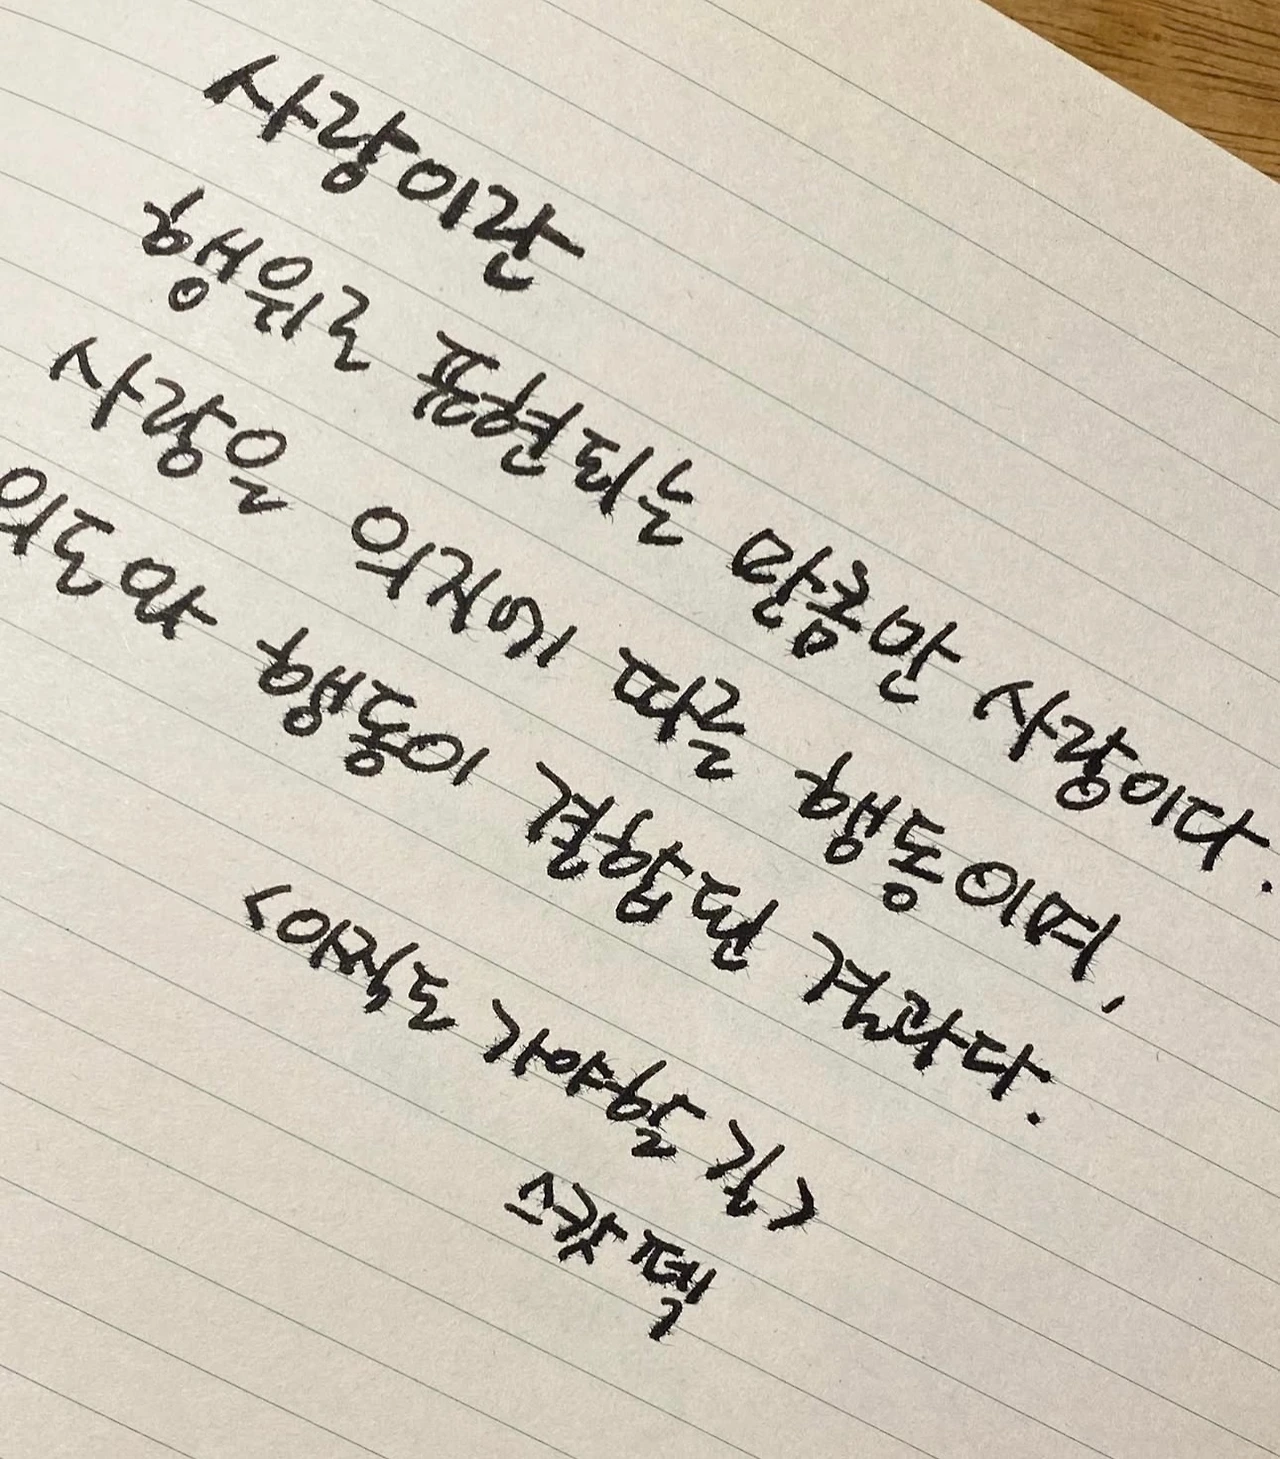 사랑이란
행위로 표현되는 만큼만 사랑이다.
사랑은 의지에 따른 행동이며,
의도와 행동이 결합된 결과다.
<아직도 가야할 길>
스캇 펙